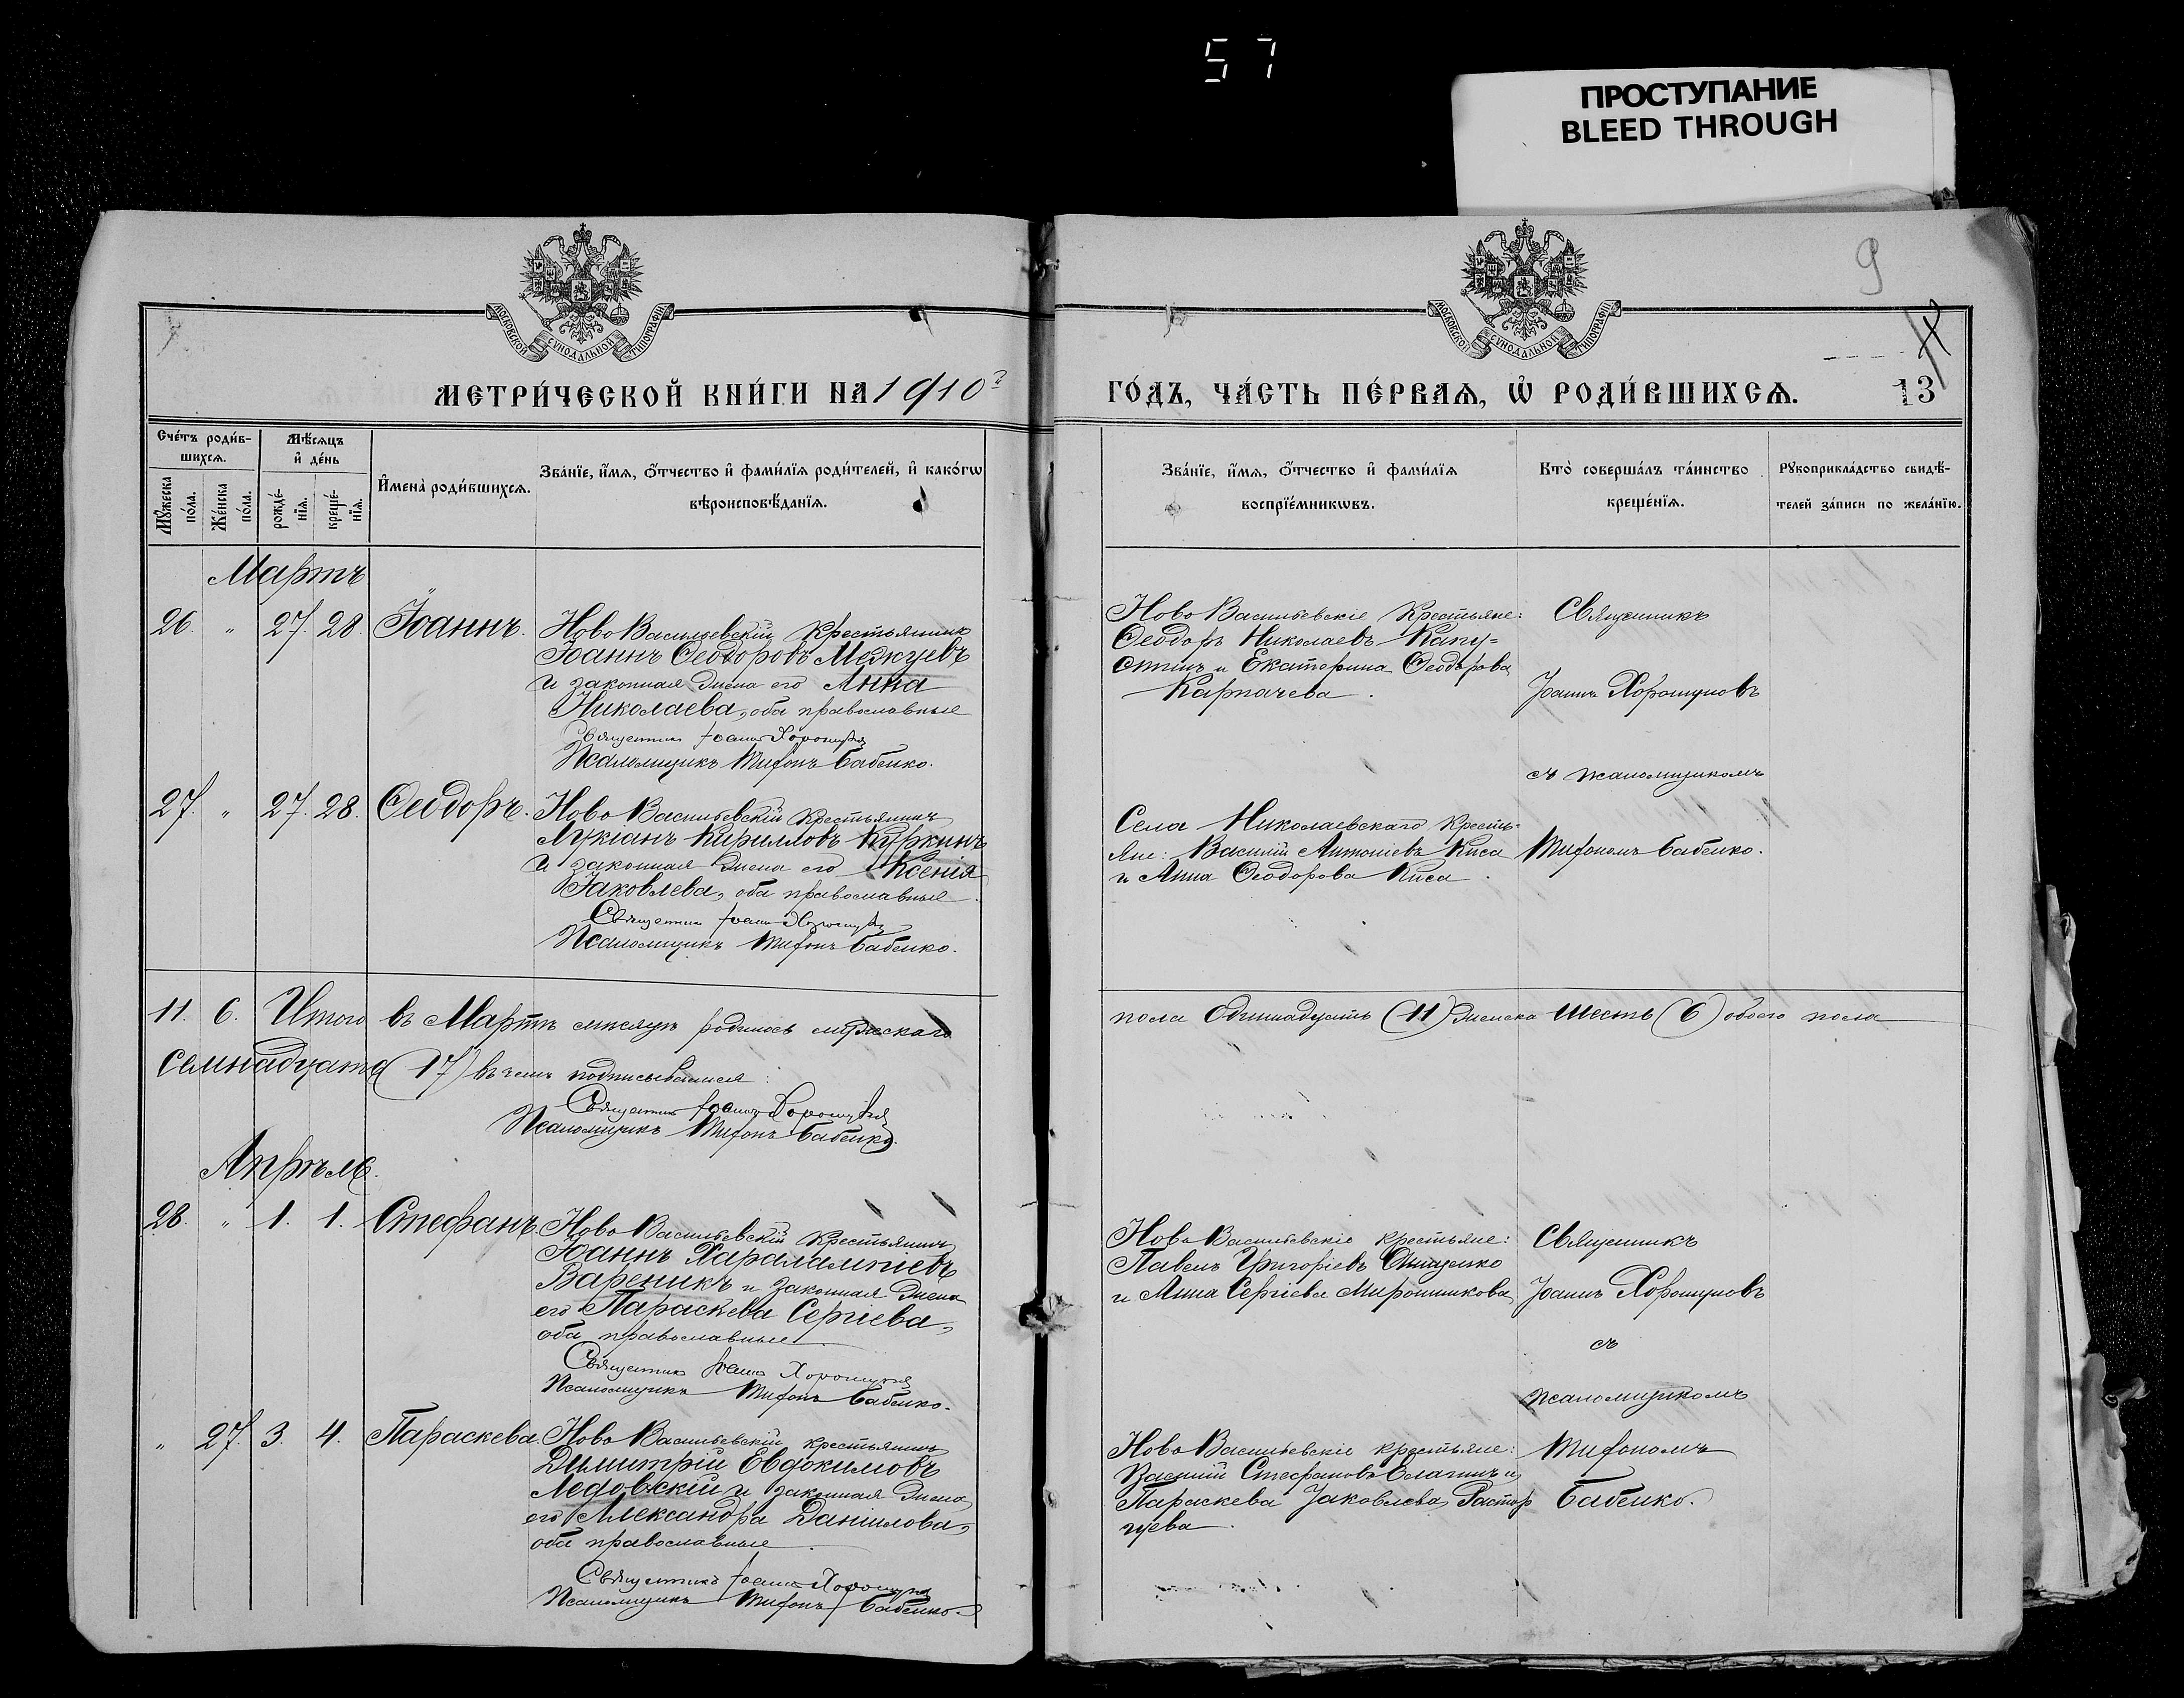 57
ПРОСТУПАНИЕ
BLEED THROUGH
9
МОСКОВСКОЙ СѴНОДАЛЬНОЙ ТИПОГРАФІИ
МОСКОВСКОЙ СѴНОДАЛЬНОЙ ТИПОГРАФІИ
МЕТРИ́ЧЕСКОЙ КНИ́ГИ НА 1910
ГО́ДЪ, ЧА́СТЬ ПЕ́РВАѦ, Ѡ҆ РОДИ́ВШИХСѦ.
13
Сче́тъ роди́в-
шихсѧ.
Мꙋ́жеска
по́ла.
Же́нска
по́ла.
Мѣ́сѧцъ
и҆ де́нь
рожде́-
нїѧ.
креще́-
нїѧ.
И҆мена̀ роди́вшихсѧ.
Зва́нїе, и҆́мѧ, ѻ҆́тчество и҆ фами́лїѧ роди́телей, и҆ како́гѡ
вѣроисповѣ́данїѧ.
Зва́нїе, и҆́мѧ, ѻ҆́тчество и҆ фами́лїѧ
воспрїе́мникѡвъ.
Кто̀ соверша́лъ та́инство
креще́нїѧ.
Рꙋкоприкла́дство свидѣ́-
телей за́писи по жела́нїю.
Мартъ
26. " 27. 28. Іоаннъ.
Ново Васильевскій крестьянинъ
Іоаннъ Ѳеодоровъ
и законная жена его Анна
Николаева, оба православные
Священникъ Іоаннъ Хорошуновъ
Псаломщикъ Тифонъ Бабенко.
Ново Васильевскіе крестьяне:
Ѳеодоръ Николаевъ Капу-
стинъ и Екатерина Ѳеодорова
Карпачева.
Священникъ
Іоаннъ Хорошуновъ
съ псаломщикомъ
27. " 27. 28. Ѳеодоръ.
Ново Васильевскій крестьянинъ
Лукіанъ Кирилловъ Куркинъ
и законная жена его Ксенія
Іаковлева, оба православные.
Священникъ Іоаннъ Хорошуновъ
Псаломщикъ Тифонъ Бабенко.
Села Николаевскаго кресть-
яне: Василій Антоніевъ Киса
и Анна Ѳеодорова Киса.
Тифономъ Бабенко.
11. 6. Итого въ Мартѣ мѣсяцѣ родилось мужескаго
пола Одиннадцать (11) женска Шесть (6) обоего пола
Семнадцать (17) въ чемъ подписываемся:
Священникъ Іоаннъ Хорошуновъ
Псаломщикъ Тифонъ Бабенко.
Апрѣль.
28. " 1. 1. Стефанъ.
Ново Васильевскій крестьянинъ
Іоаннъ Харалампіевъ
Вареникъ и законная жена
его Параскева Сергіева,
оба православные
Священникъ Іоаннъ Хорошуновъ
Псаломщикъ Тифонъ Бабенко.
Ново Васильевскіе крестьяне:
Павелъ Григоріевъ Онищенко
и Анна Сергіева Мирошникова
Священникъ
Іоаннъ Хорошуновъ
съ
псаломщикомъ
" 27. 3. 4. Параскева.
Ново Васильевскій крестьянинъ
Димитрій Евдокимовъ
Ледовскій и законная жена
его Александра Даніилова,
оба православные.
Священникъ Іоаннъ Хорошуновъ
Псаломщикъ Тифонъ Бабенко.
Ново Васильевскіе крестьяне:
Василій Стефановъ и
Параскева Іаковлева Растор
гуева.
Тифономъ
Бабенко.